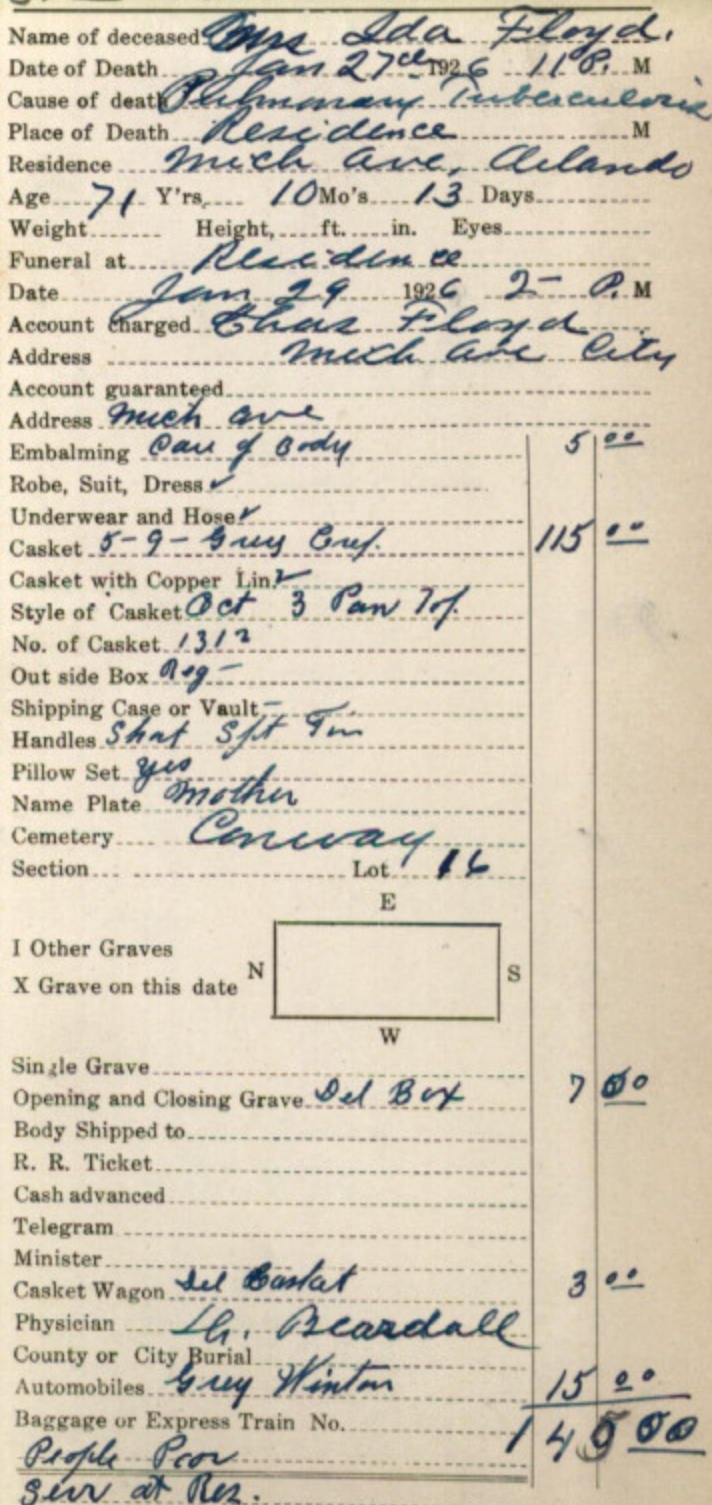 Name of deceased Mrs Ida Floyd.
Date of Death Jan 27th 1926 11 P. M
Cause of death Pulmonary Tuberculosis
Place of Death Residence M
Residence Mich Ave, Orlando
Age 71 Y'rs, 10 Mo's 13 Days
Weight Height, ft. in. Eyes
Funeral at Residence
Date Jan 29 1926 2- P. M
Account charged Chas Floyd
Address Mich Ave City
Account guaranteed
Address Mich ave
Embalming Care of Body 5 00
Robe, Suit, Dress ✓
Underwear and Hose ✓
Casket 5-9- Grey Crep. 115 00
Casket with Copper Lin. ✓
Style of Casket Oct 3 Pan Top
No. of Casket 1312
Out side Box Reg -
Shipping Case or Vault -
Handles Shat Spt Fin
Pillow Set yes
Name Plate Mother
Cemetery Conway
Section Lot 16
E
I Other Graves
N S
X Grave on this date
W
Single Grave
Opening and Closing Grave Del Box 7 00
Body Shipped to
R. R. Ticket
Cash advanced
Telegram
Minister
Casket Wagon Del Casket 3 00
Physician Dr. Beardall
County or City Burial
Automobiles Grey Winton 15 00
Baggage or Express Train No. 145 00
People Poor
Serv at Res.